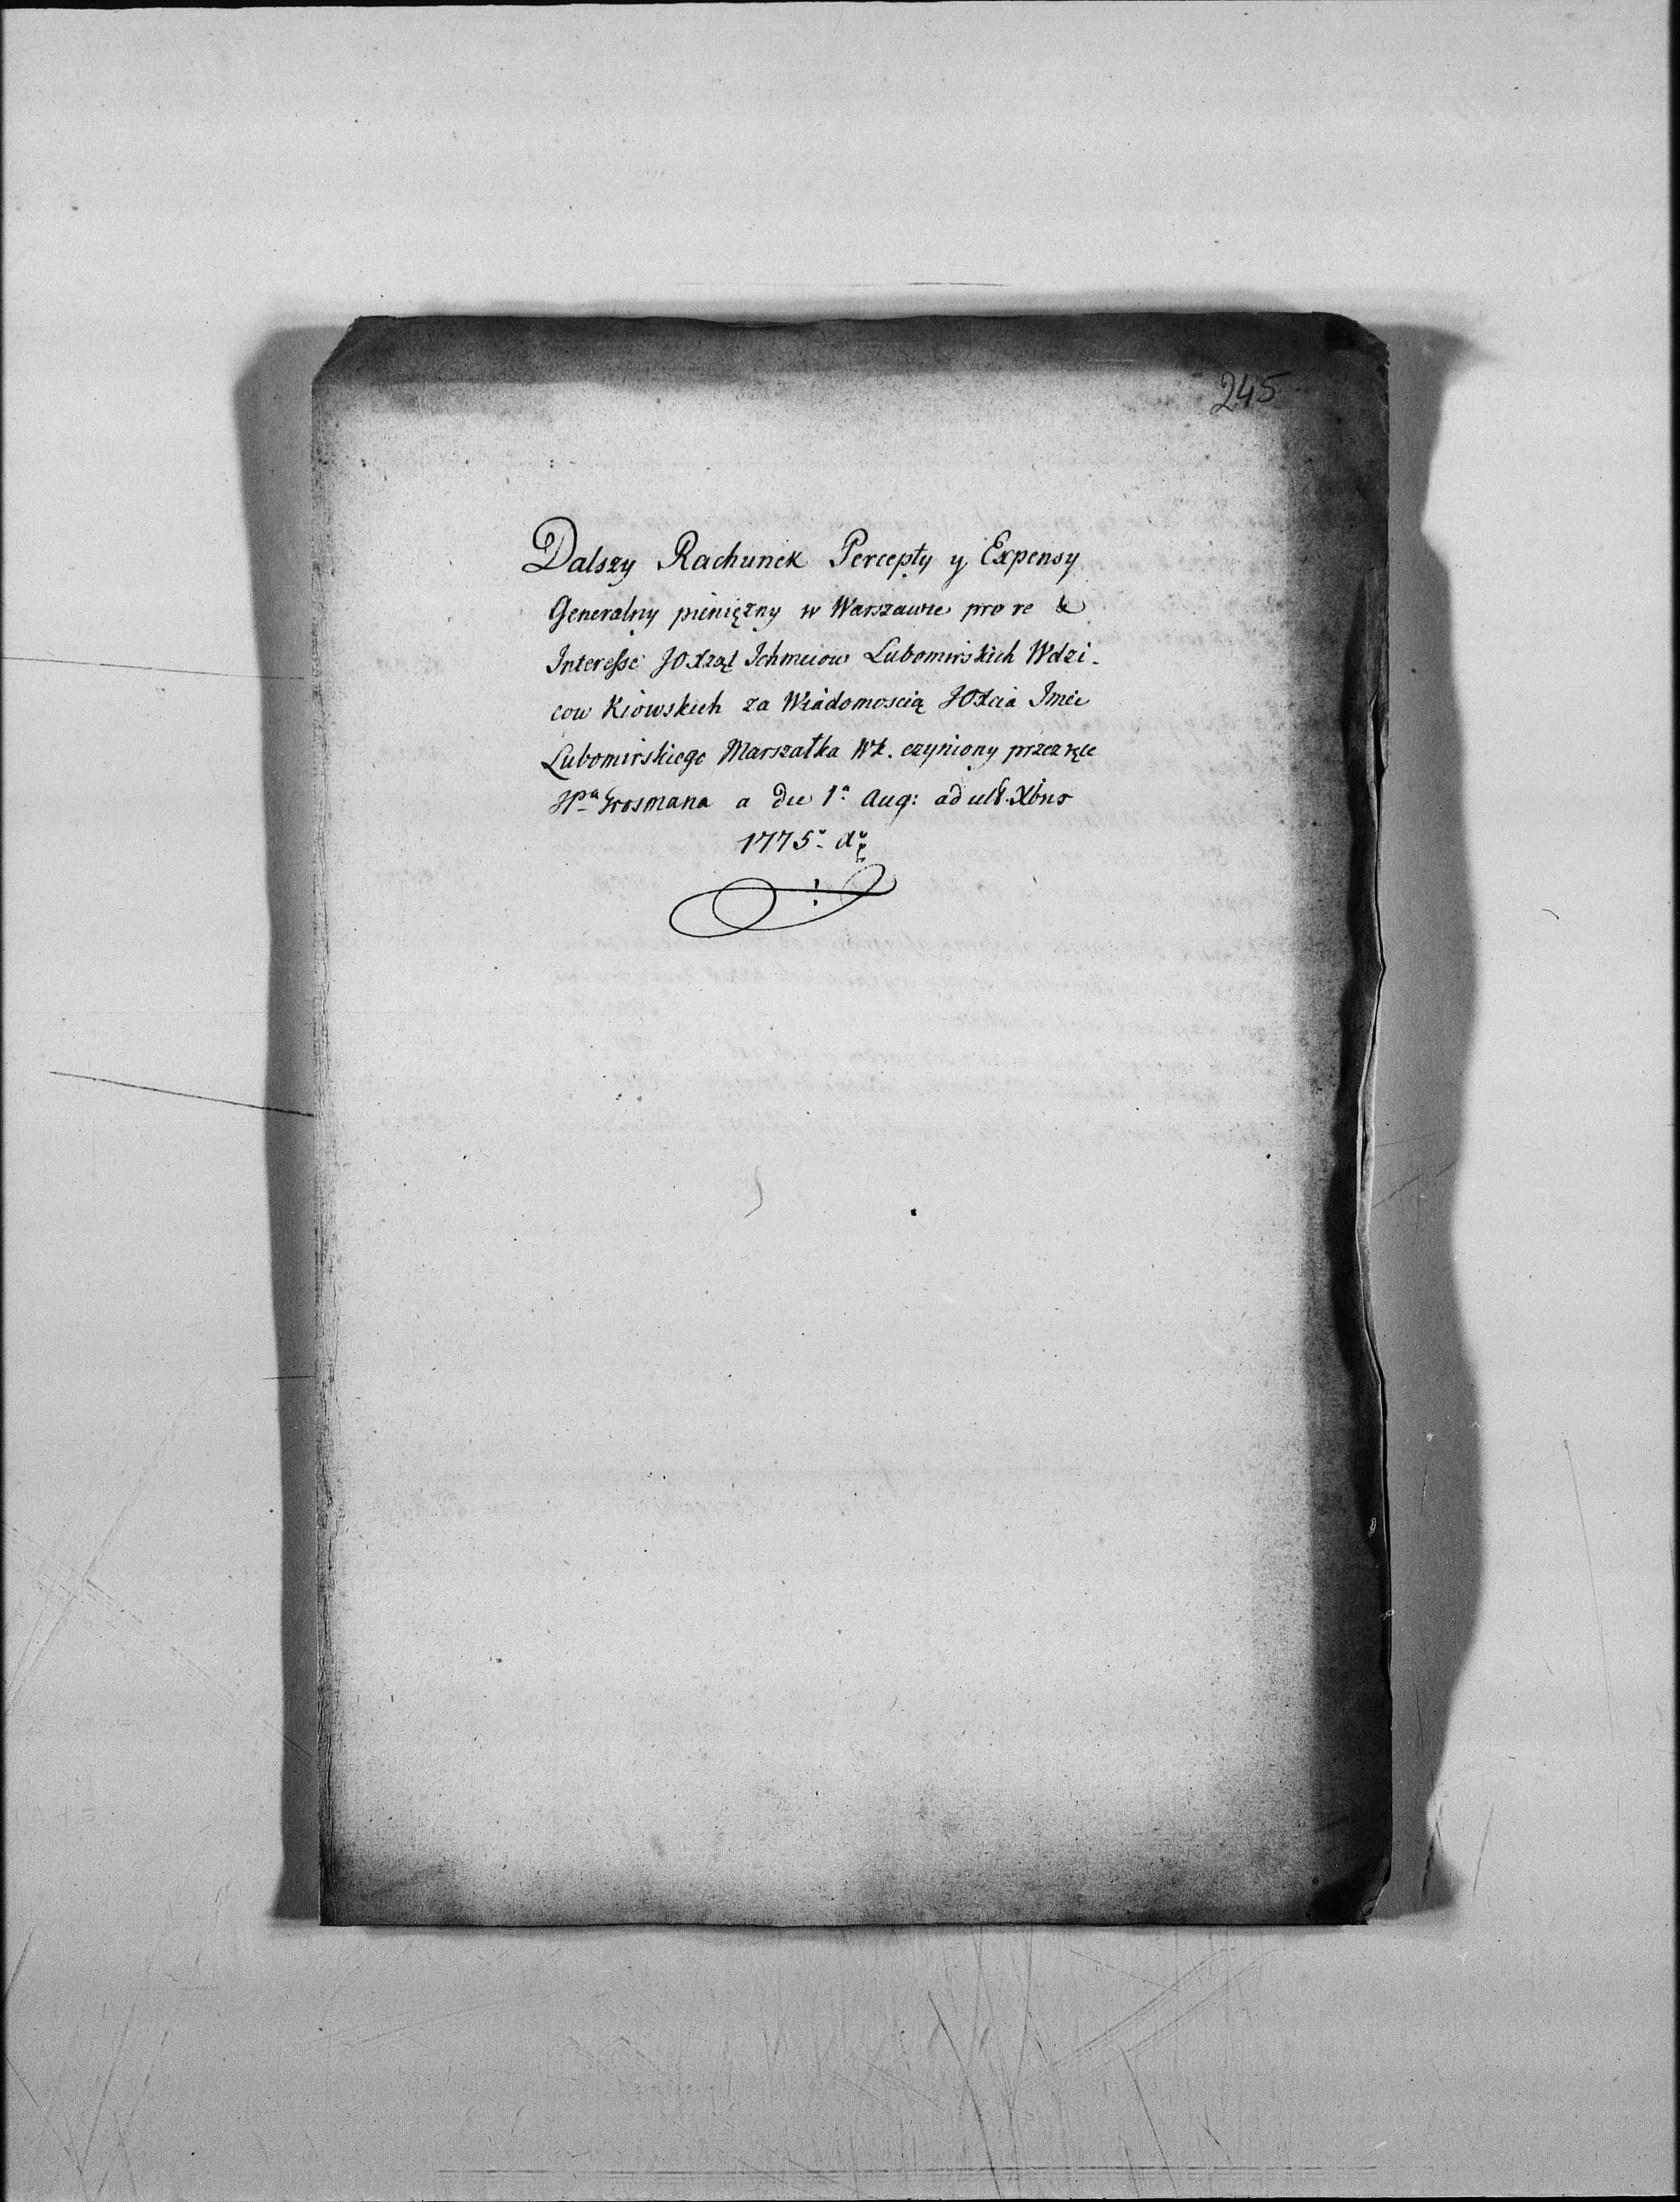 245
Dalszy Rachunek Percepty y Expensy
Generalny pieniężny w Warszawie pro re &
Interesse JOXżąt Ichmciow Lubomirskich Wdzi-
cow Kiowskich za Wiadomoscią JOXcia Jmci
Lubomirskiego Marszałka WK. czyniony przez ręce
JPa Grosmana a die 1a Aug: ad ult. Xbris
1775.